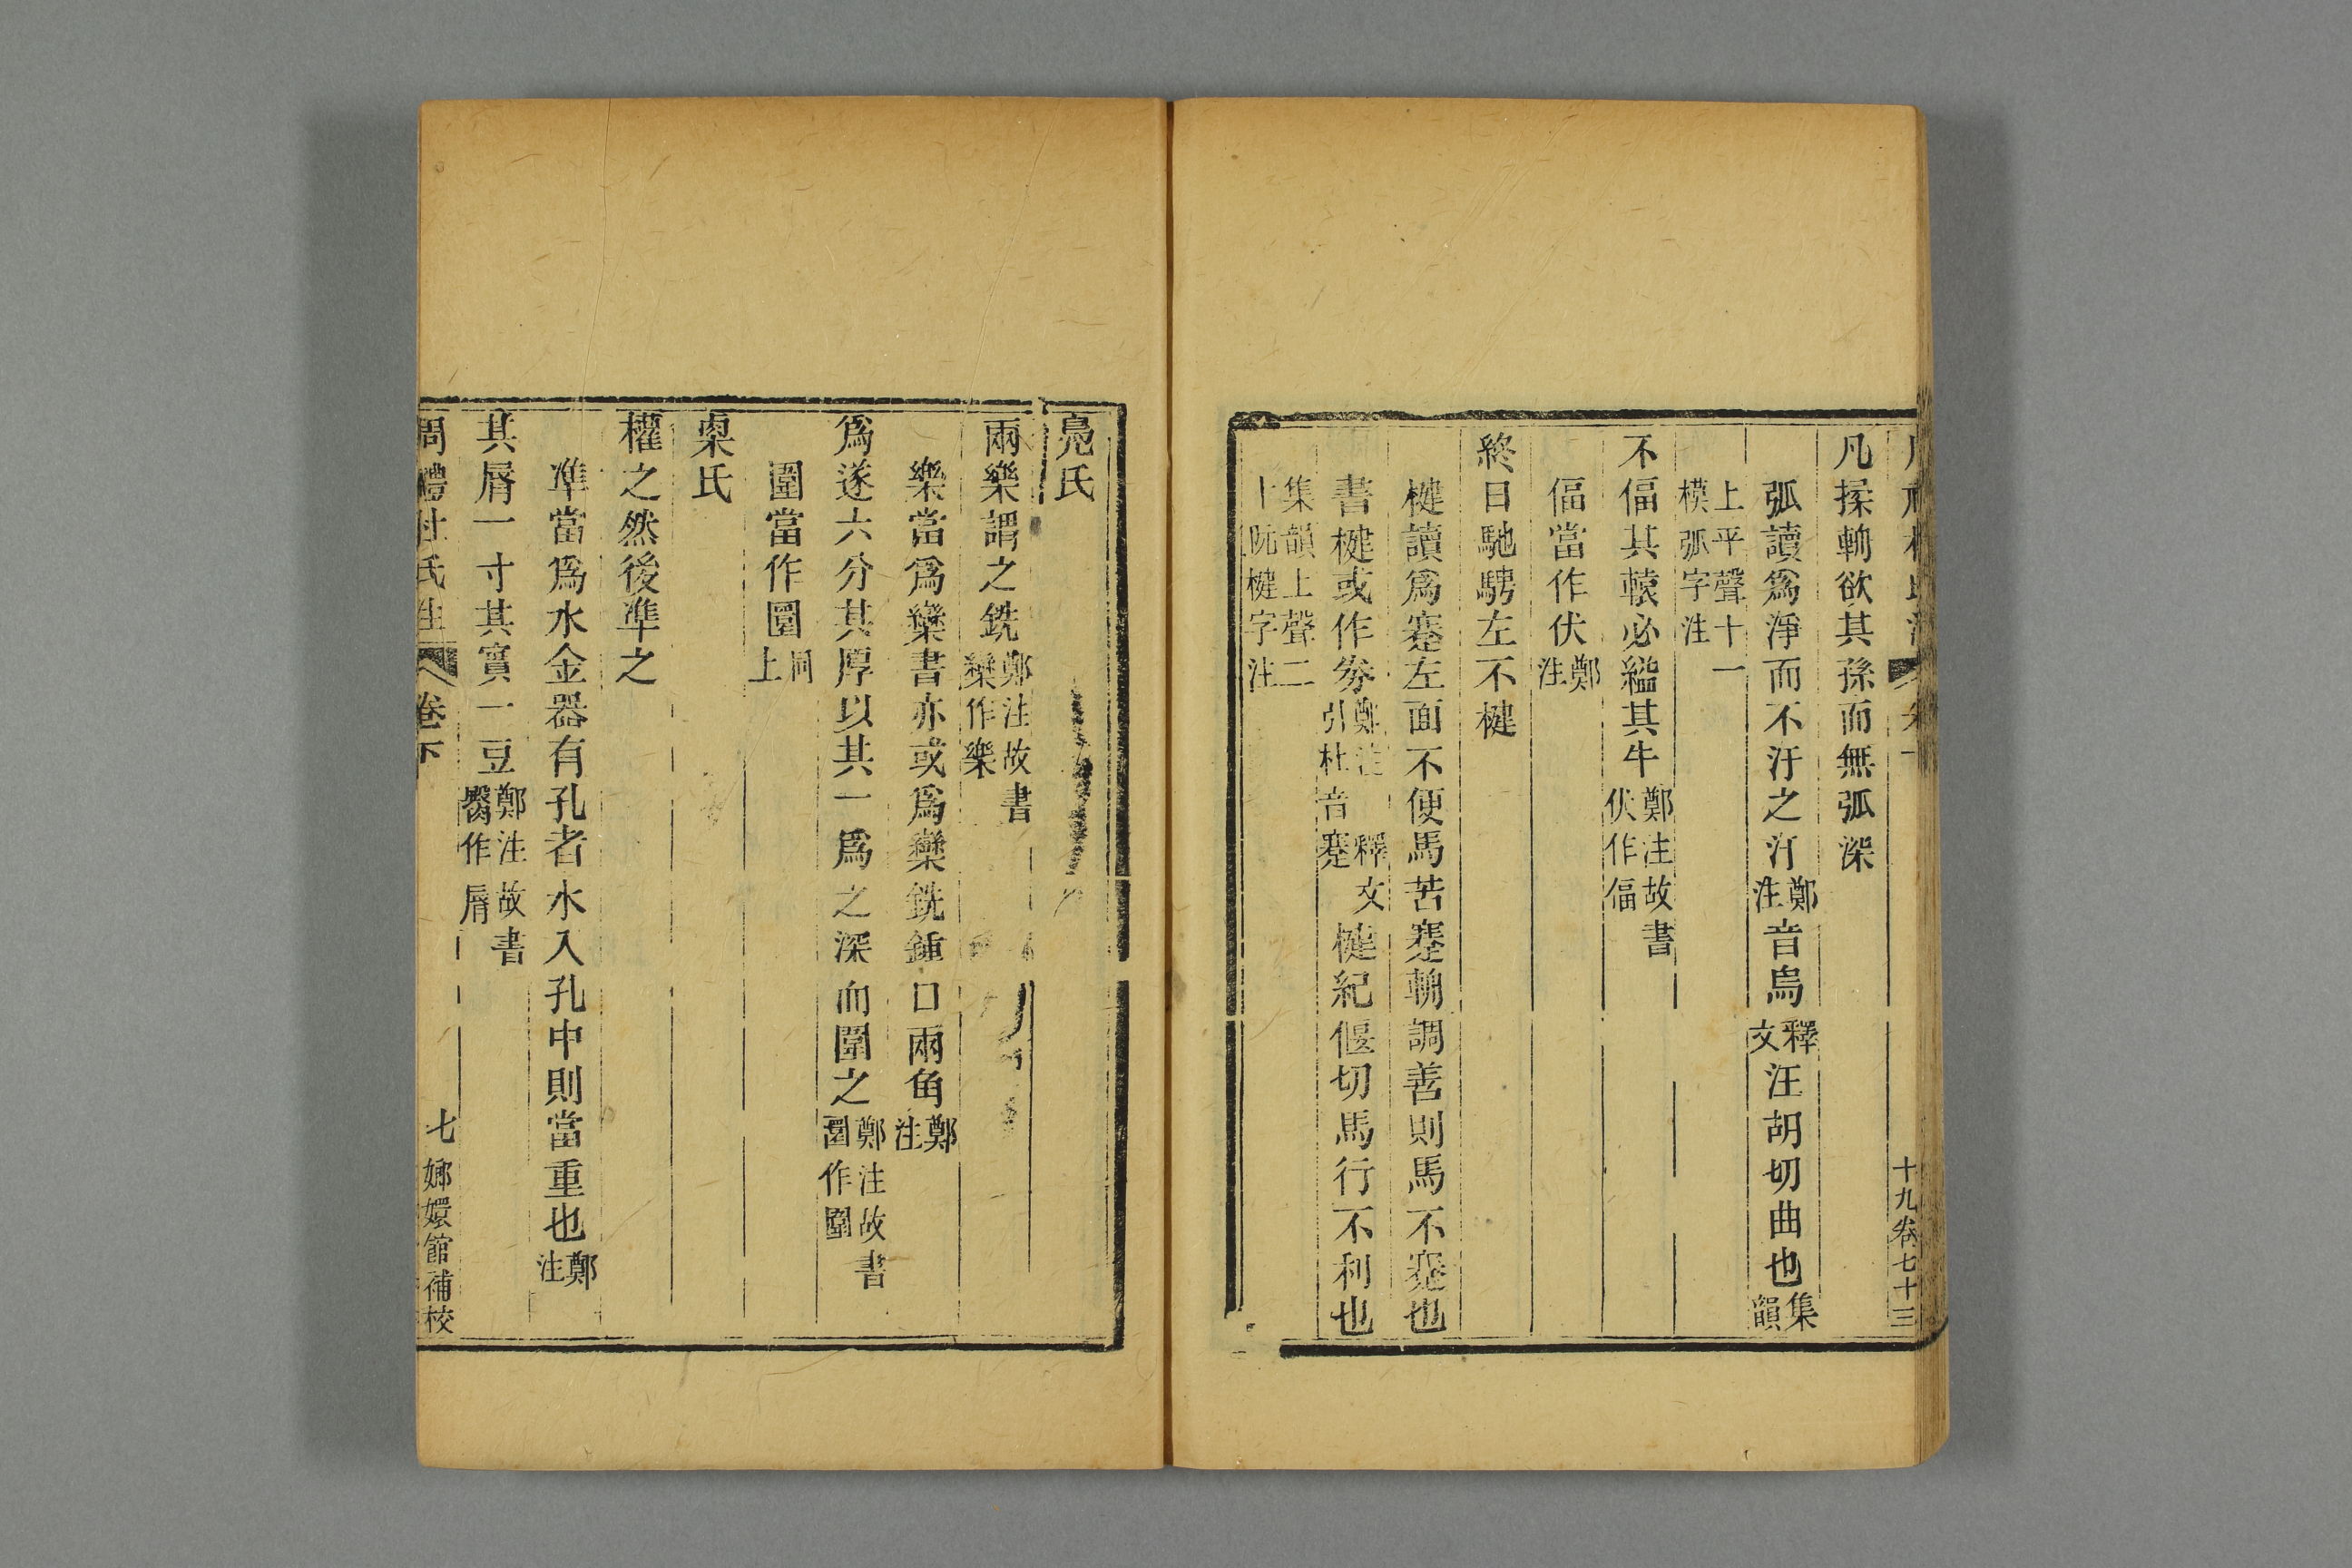 十九卷七十三
凡揉輈欲其孫而無弧深
弧讀爲淨而不汙之汙鄭注音烏釋文汪胡切曲也集韻
上平聲十一模弧字注
不偪其轅必縊其牛鄭注故書伏作偪
偪當作伏鄭注
終日馳騁左不楗
楗讀爲蹇左面不便馬苦蹇輈調善則馬不蹇也
書楗或作劵鄭注引杜音蹇釋文楗紀偃切馬行不利也
集韻上聲二十阮楗字注
鳧氏
兩樂謂之銑鄭注故書欒作樂
樂當爲欒書亦或爲欒銑鍾口兩角鄭注
爲遂六分其厚以其一爲之深而圍之鄭注故書圜作圍
圍當作圜同上
㮚氏
權之然後準之
準當爲水金器有孔者水入孔中則當重也鄭注
其脣一寸其實一豆鄭注故書臋作脣
周禮杜氏注 卷下 七 嫏嬛館補校